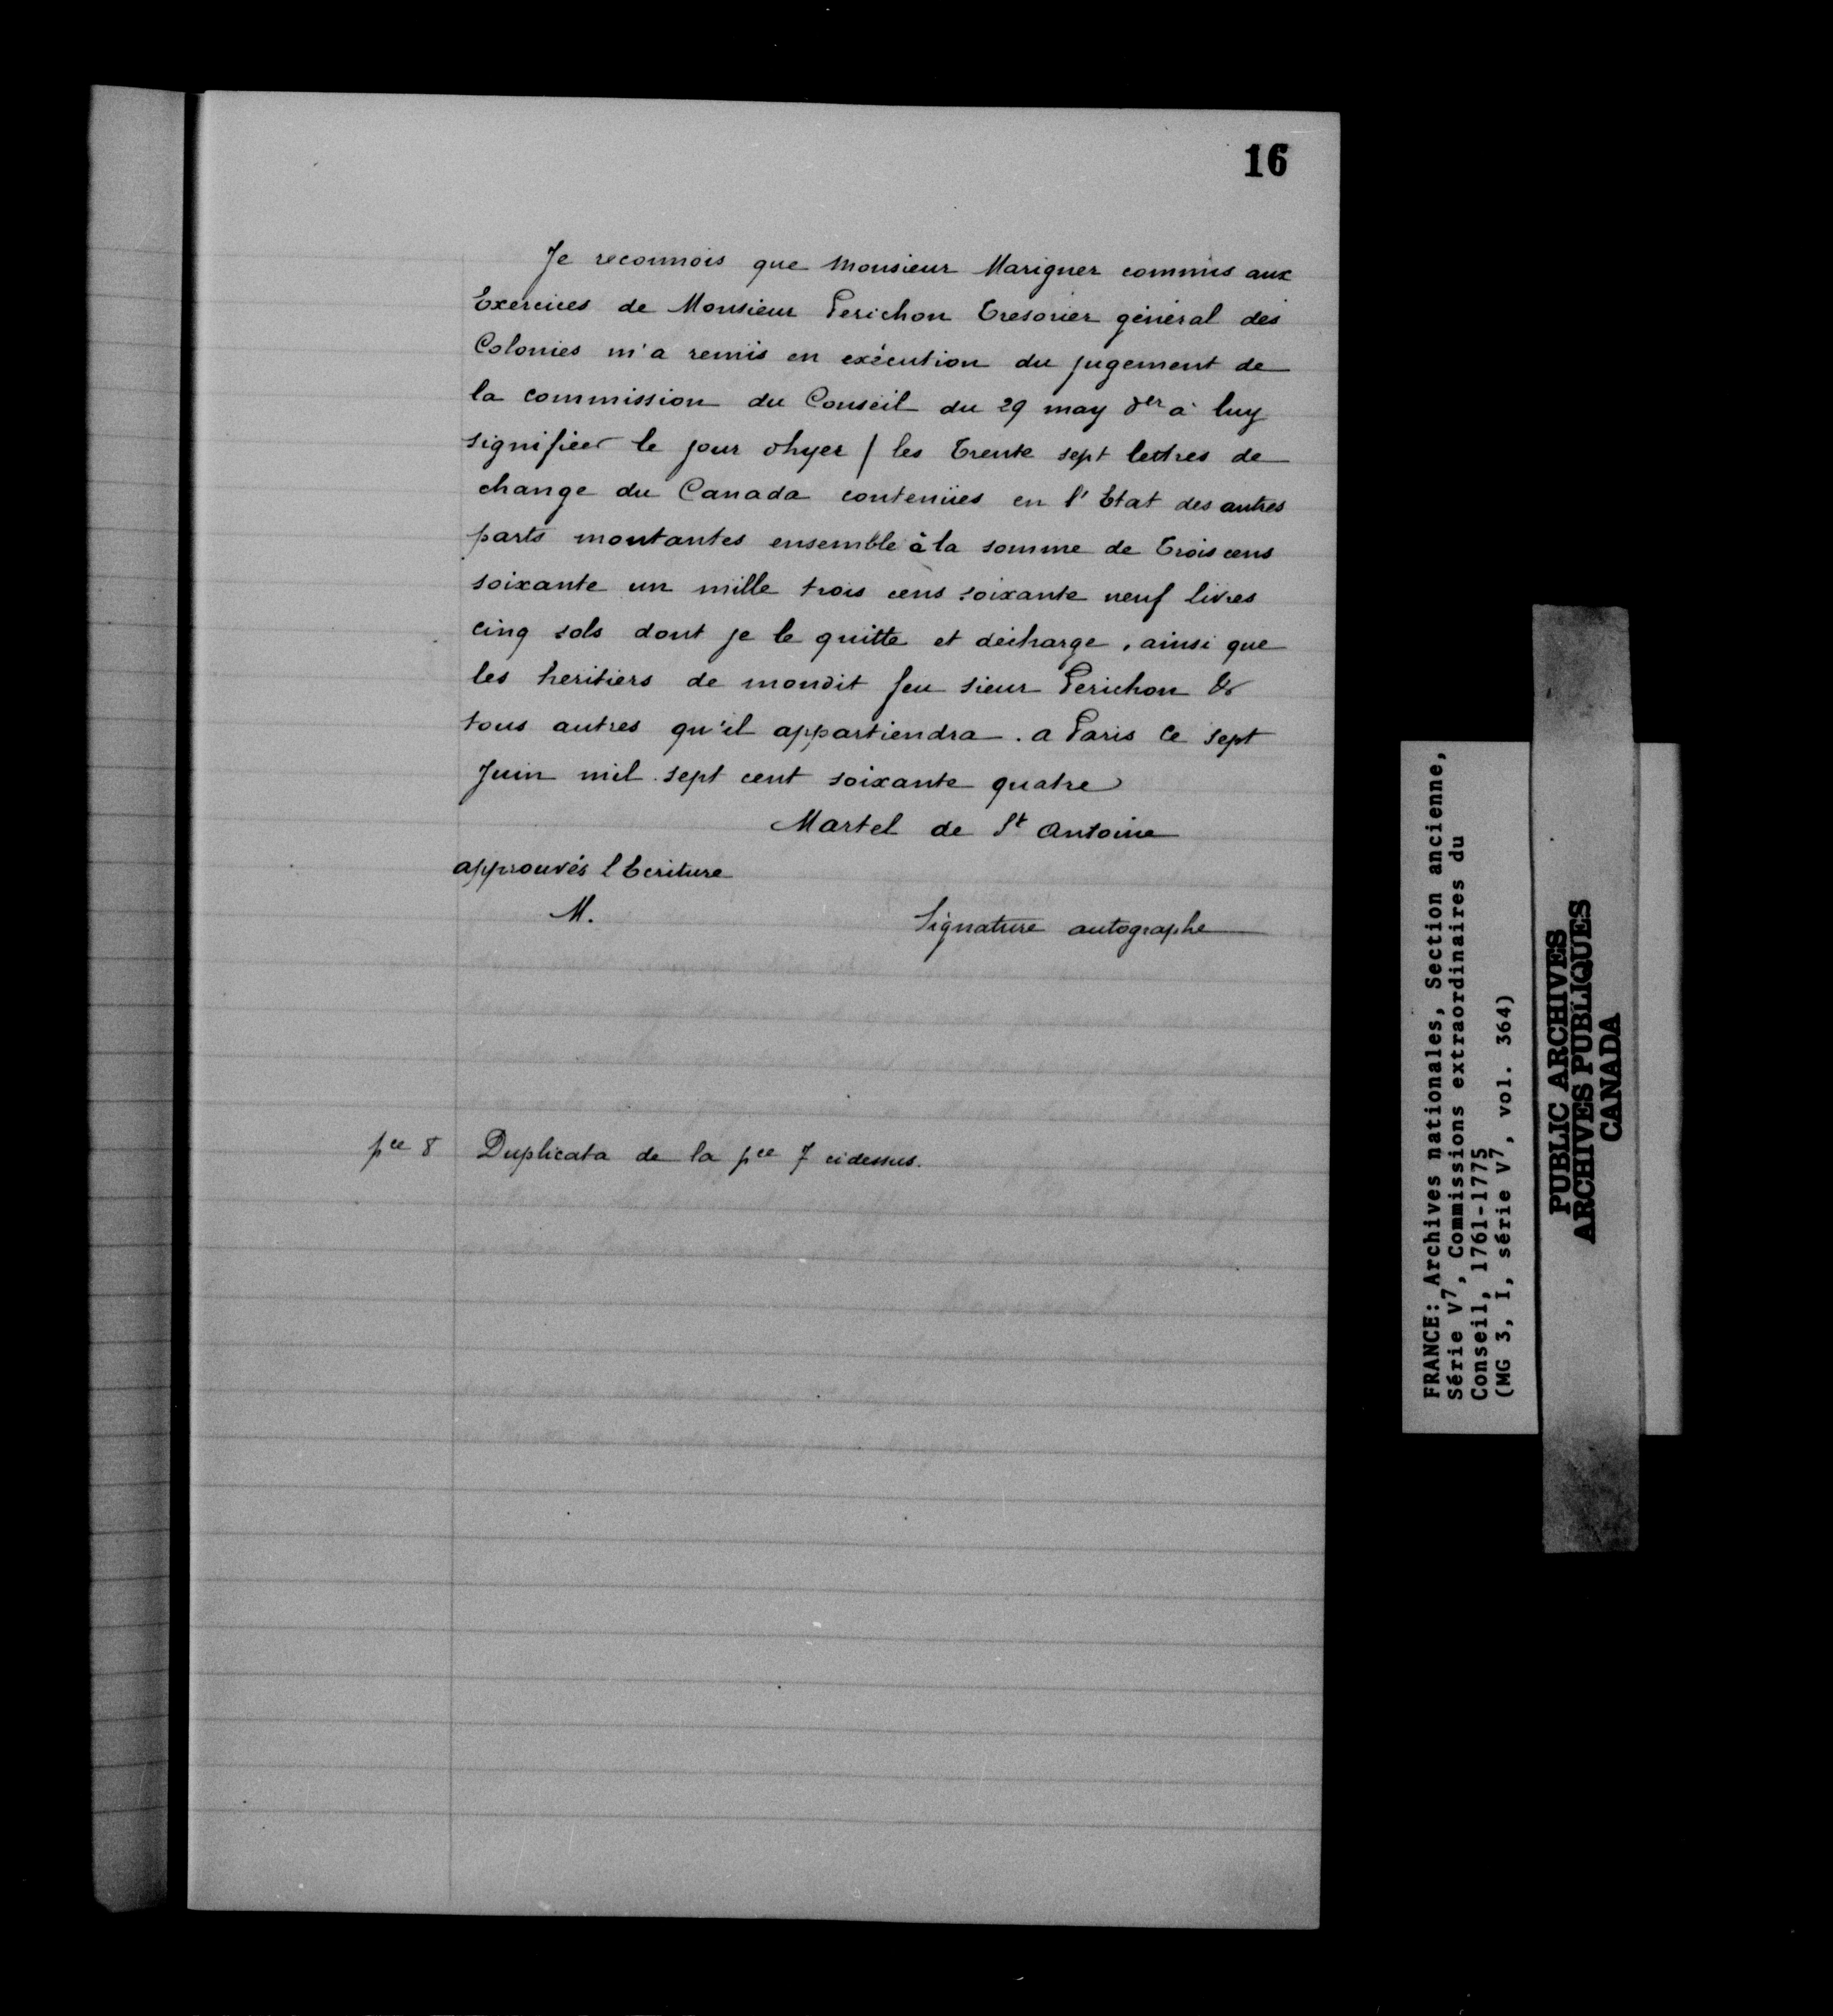 16
Je reconnois que Monsieur Marigner commis aux
Exercices de Monsieur Perichon Tresorier général des
Colonies m'a remis en exécution du jugement de
la commission du Conseil du 29 may der à luy
signifiée le jour dhyer / les Trente sept lettres de
change du Canada contenües en l'Etat des autres
parts montantes ensemble à la somme de Trois cens
soixante un mille trois cens soixante neuf livres
cinq sols dont je le quitte et décharge, ainsi que
les heritiers de mondit feu sieur Perichon &
tous autres qu'il appartiendra. a Paris Ce sept
Juin mil sept cent soixante quatre
Martel de St Antoine
approuvés l Ecriture
M.
Signature autographe
pce 8 Duplicata de la pce 7 cidessus.
FRANCE: Archives nationales, Section ancienne,
Série V7, Commissions extraordinaires du
Conseil, 1761-1775
(MG 3, I, série V7, vol. 364)
PUBLIC ARCHIVES
ARCHIVES PUBLIQUES
CANADA